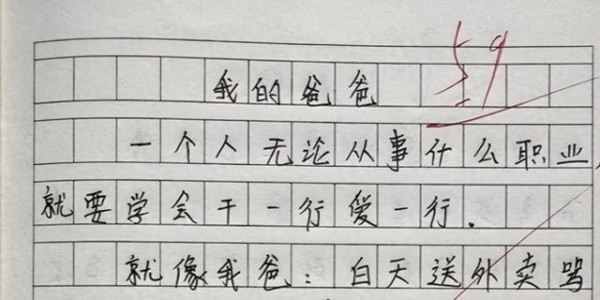 59
我的爸爸
一个人无论从事什么职业,
就要学会干一行爱一行.
就像我爸:白天送外卖骂